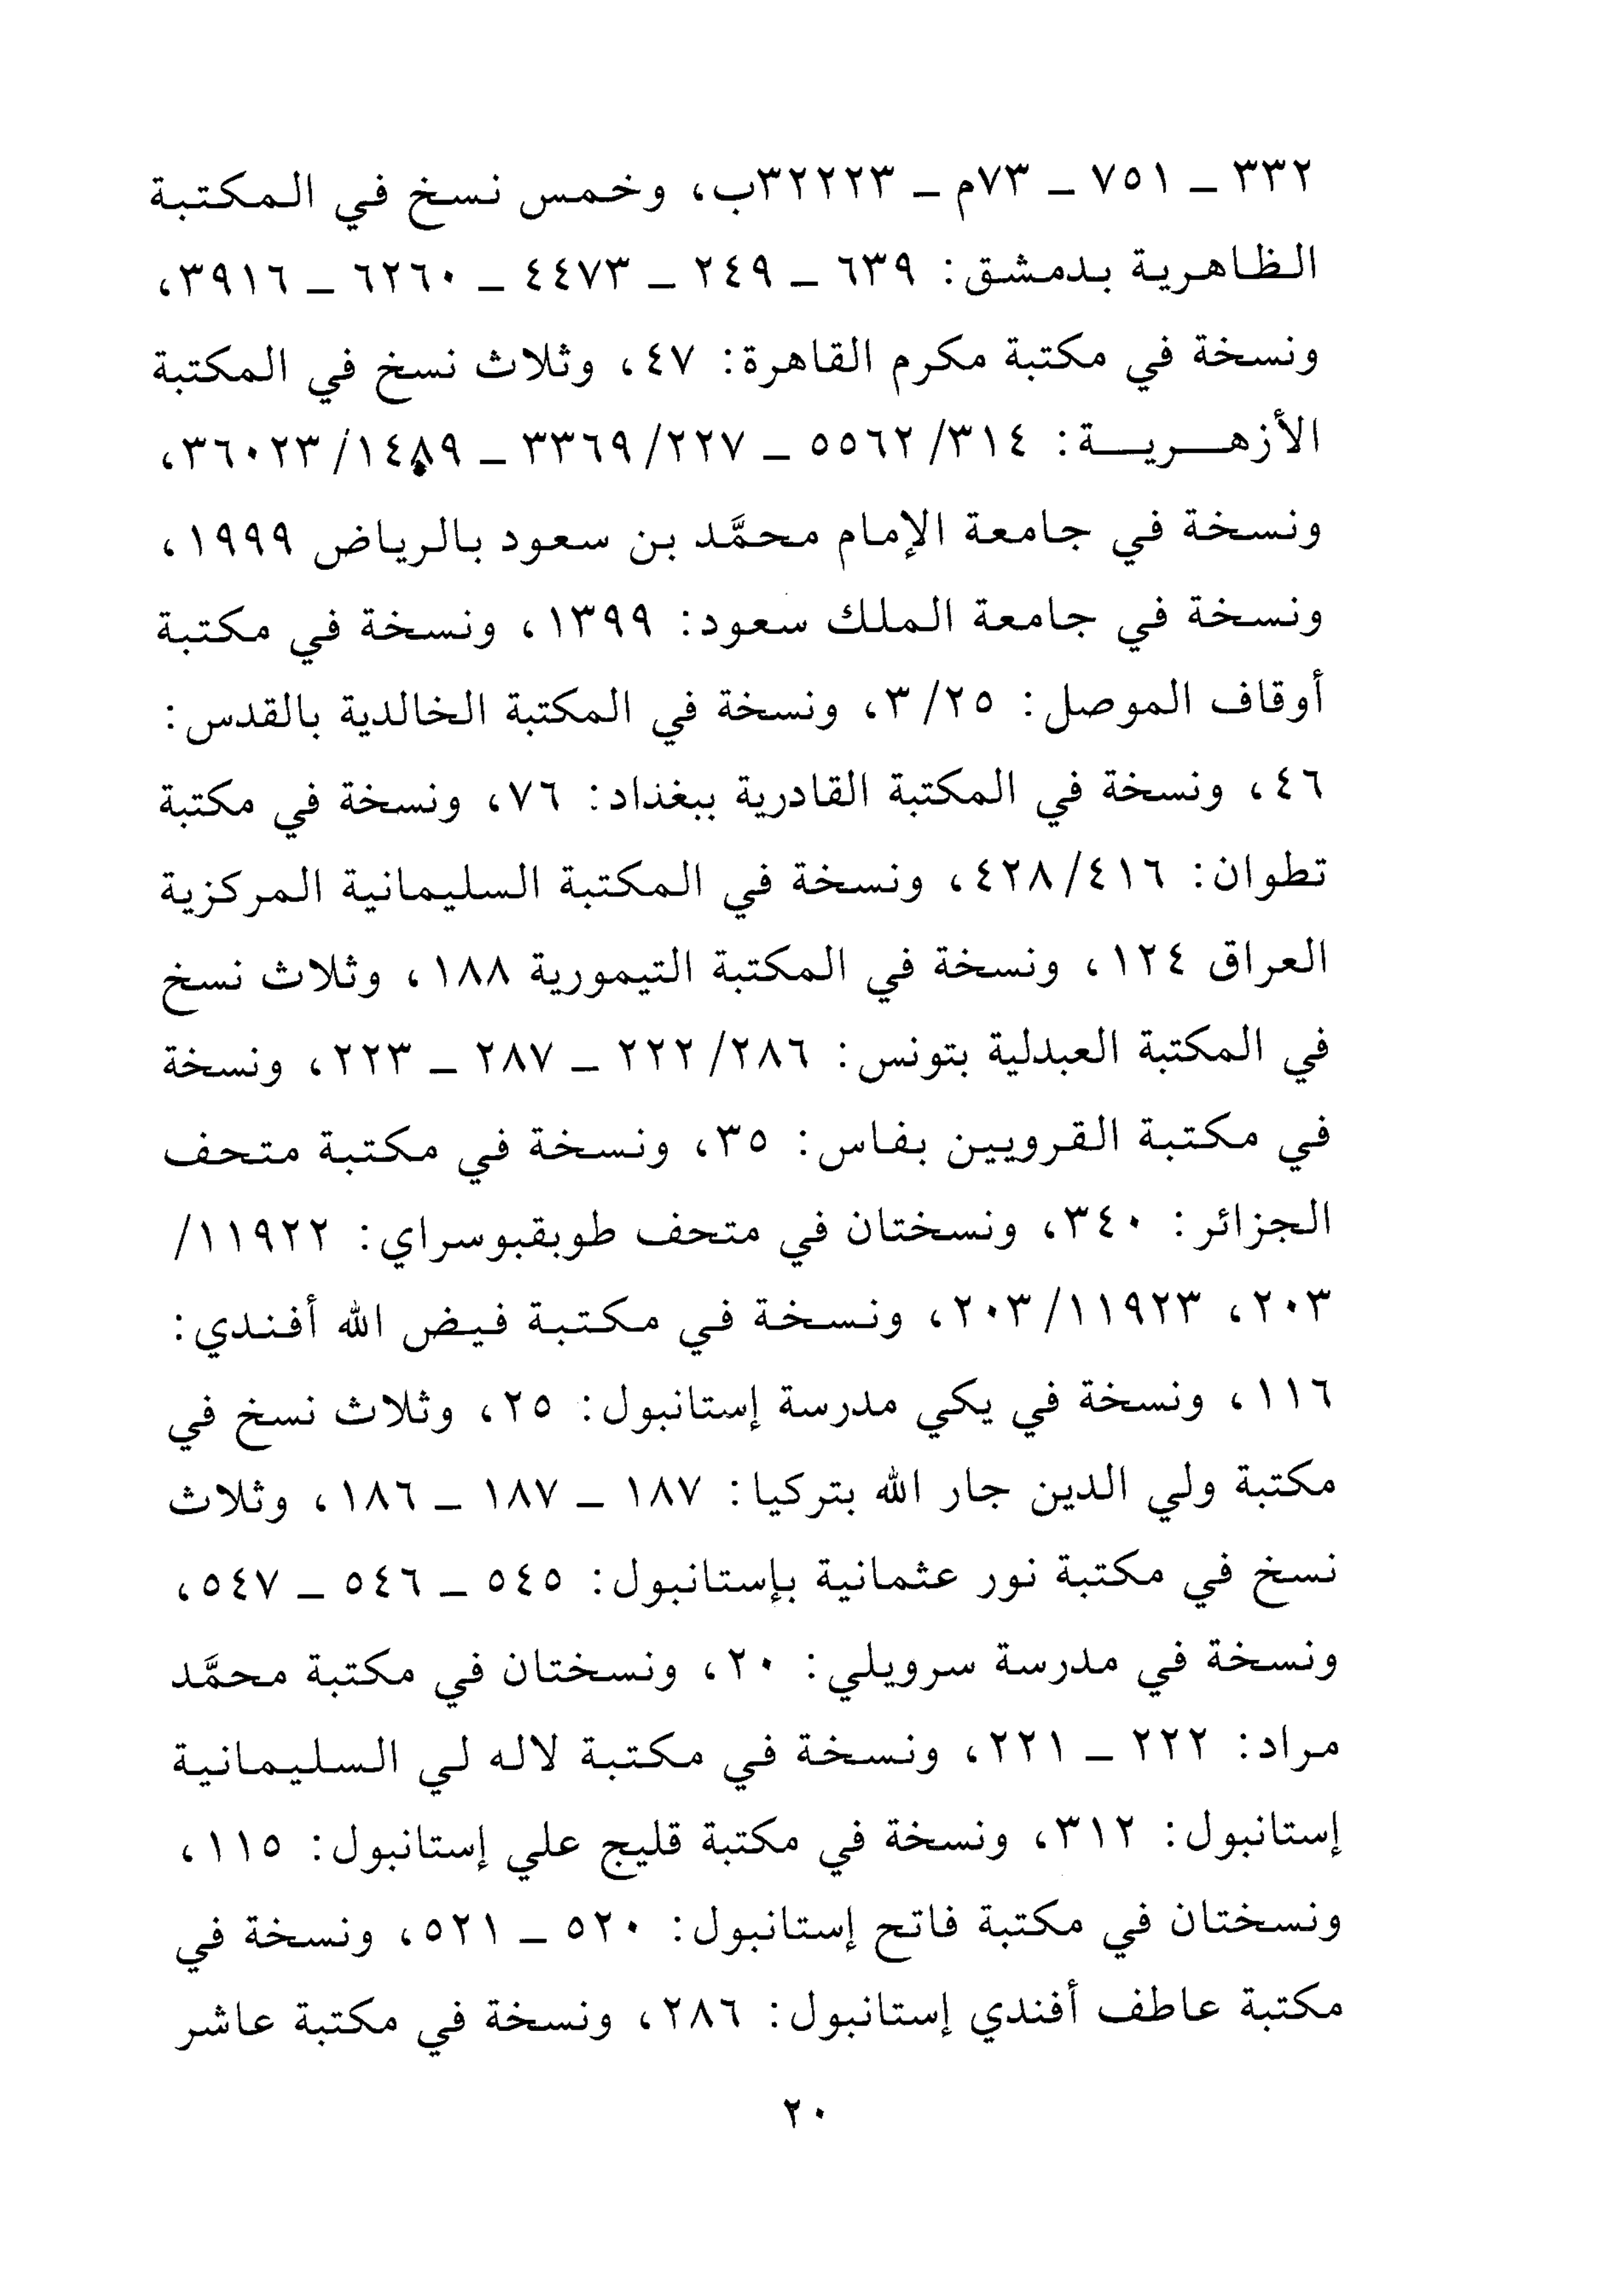 ٣٣٢ ـ ٧٥١ ـ ٧٣م ـ ٣٢٢٢٣ب، وخمس نسخ في المكتبة
الظاهرية بدمشق: ٦٣٩ ـ ٢٤٩ ـ ٤٤٧٣ ـ ٦٢٦٠ ـ ٣٩١٦،
ونسخة في مكتبة مكرم القاهرة: ٤٧، وثلاث نسخ في المكتبة
الأزهـريـة: ٣١٤/ ٥٥٦٢ ـ ٢٢٧/ ٣٣٦٩ ـ ١٤٨٩/ ٣٦٠٢٣،
ونسخة في جامعة الإمام محمَّد بن سعود بالرياض ١٩٩٩،
ونسخة في جامعة الملك سعود: ١٣٩٩، ونسخة في مكتبة
أوقاف الموصل: ٢٥/ ٣، ونسخة في المكتبة الخالدية بالقدس:
٤٦، ونسخة في المكتبة القادرية ببغداد: ٧٦، ونسخة في مكتبة
تطوان: ٤١٦/ ٤٢٨، ونسخة في المكتبة السليمانية المركزية
العراق ١٢٤، ونسخة في المكتبة التيمورية ١٨٨، وثلاث نسخ
في المكتبة العبدلية بتونس: ٢٨٦/ ٢٢٢ ـ ٢٨٧ ـ ٢٢٣، ونسخة
في مكتبة القرويين بفاس: ٣٥، ونسخة في مكتبة متحف
الجزائر: ٣٤٠، ونسختان في متحف طوبقبوسراي: ١١٩٢٢/
٢٠٣، ١١٩٢٣/ ٢٠٣، ونسخة في مكتبة فيض الله أفندي:
١١٦، ونسخة في يكي مدرسة إستانبول: ٢٥، وثلاث نسخ في
مكتبة ولي الدين جار الله بتركيا: ١٨٧ ـ ١٨٧ ـ ١٨٦، وثلاث
نسخ في مكتبة نور عثمانية بإستانبول: ٥٤٥ ـ ٥٤٦ ـ ٥٤٧،
ونسخة في مدرسة سرويلي: ٢٠، ونسختان في مكتبة محمَّد
مراد: ٢٢٢ ـ ٢٢١، ونسخة في مكتبة لاله لي السليمانية
إستانبول: ٣١٢، ونسخة في مكتبة قليج علي إستانبول: ١١٥،
ونسختان في مكتبة فاتح إستانبول: ٥٢٠ ـ ٥٢١، ونسخة في
مكتبة عاطف أفندي إستانبول: ٢٨٦، ونسخة في مكتبة عاشر
٢٠